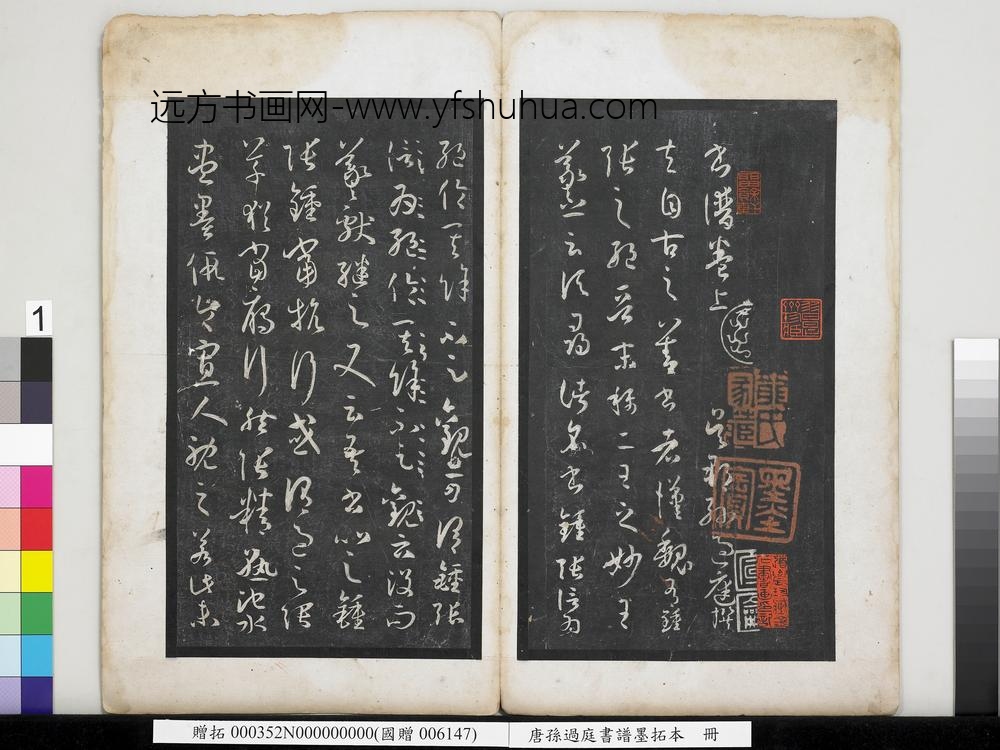 远方书画网-www.yfshuhua.com
書譜卷上 吳郡孫過庭撰
夫自古之善書者漢魏有鍾
張之絕晉末稱二王之妙王
羲之云頃尋諸名書鍾張信為
絕倫其餘不足觀可謂鍾張
信為絕倫其餘不足觀云沒而
羲獻繼之又云吾書比之鍾
張鍾當抗行或謂過之張
草猶當雁行然張精熟池水
盡墨假令寡人耽之若此未
1
贈拓 000352N000000000(國贈 006147)
唐孫過庭書譜墨拓本 冊